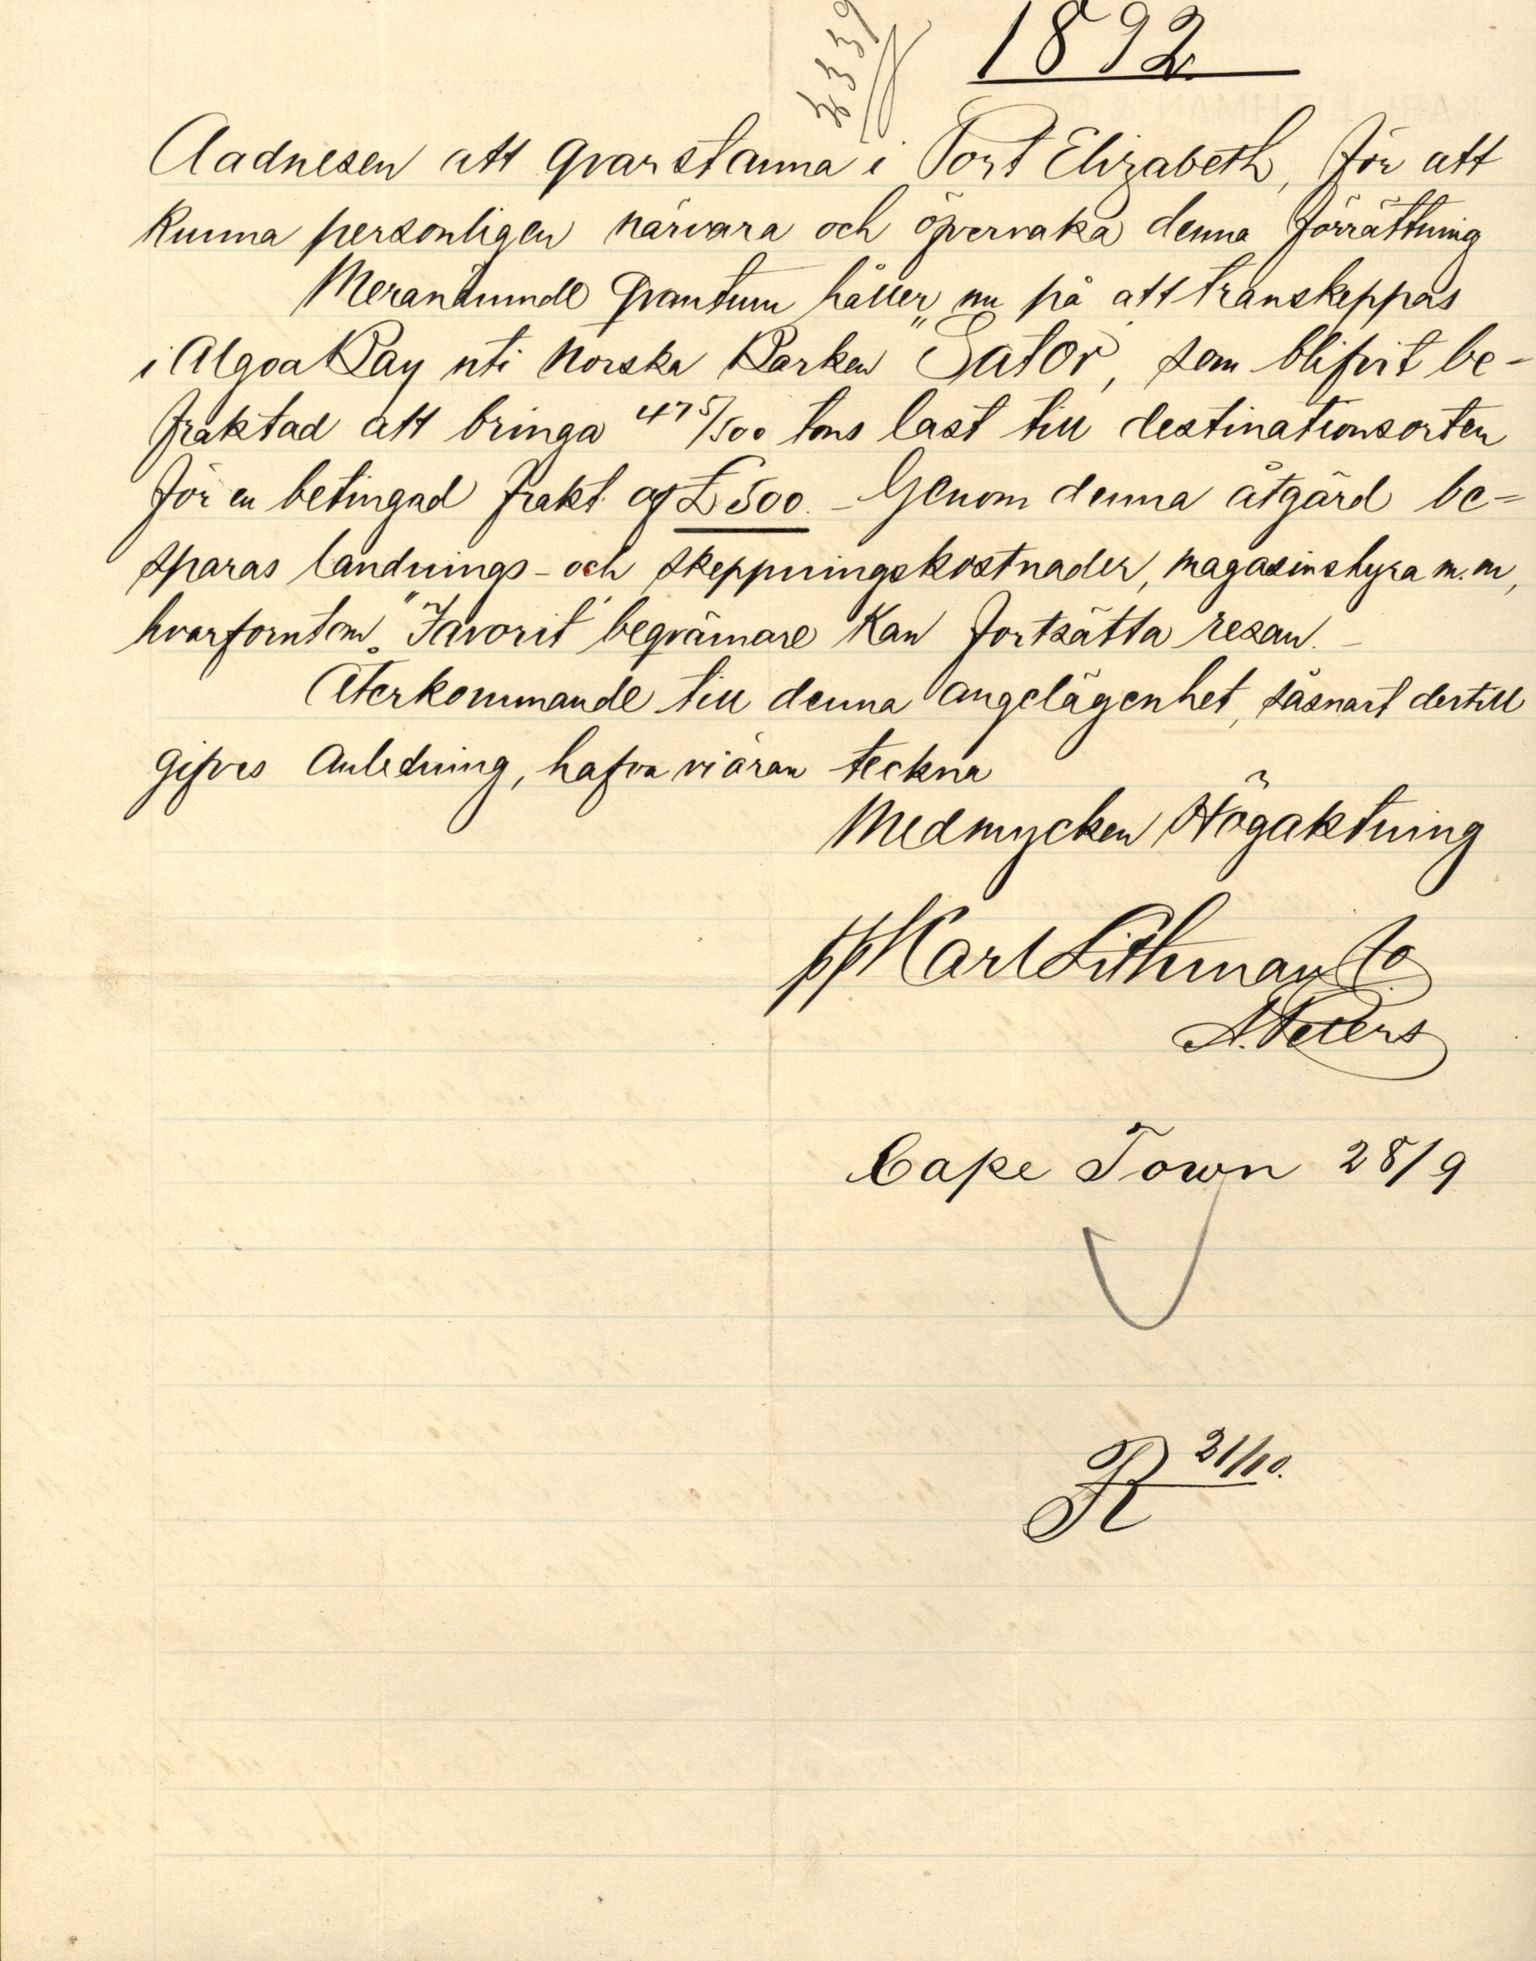 2339
1892
Aadnesen att qvarstanna i Port Elizabeth, för att
kunna personligen närvara och öfvervaka denna förrättning
Meranämnde Qvantum håller nu på att transkeppas
i Algoa Bay uti Norska Barken "Sator", som blifvit be-
fraktad att bringa 475/500 tons last till destinationsorten
för en betingad frakt af £500. – Genom denna åtgärd be-
sparas landnings- och skeppningskostnader, magasinshyra m.m,
hvarforutom "Favorit" beqvämare kan fortsätta resan. –
Återkommande till denna angelägenhet, såsnart dertill
gifves Anledning, hafva vi äran teckna
Med mycken Högaktning
pp Karl Lithman Co
A. Peters
Cape Town 28/9
R 21/10.